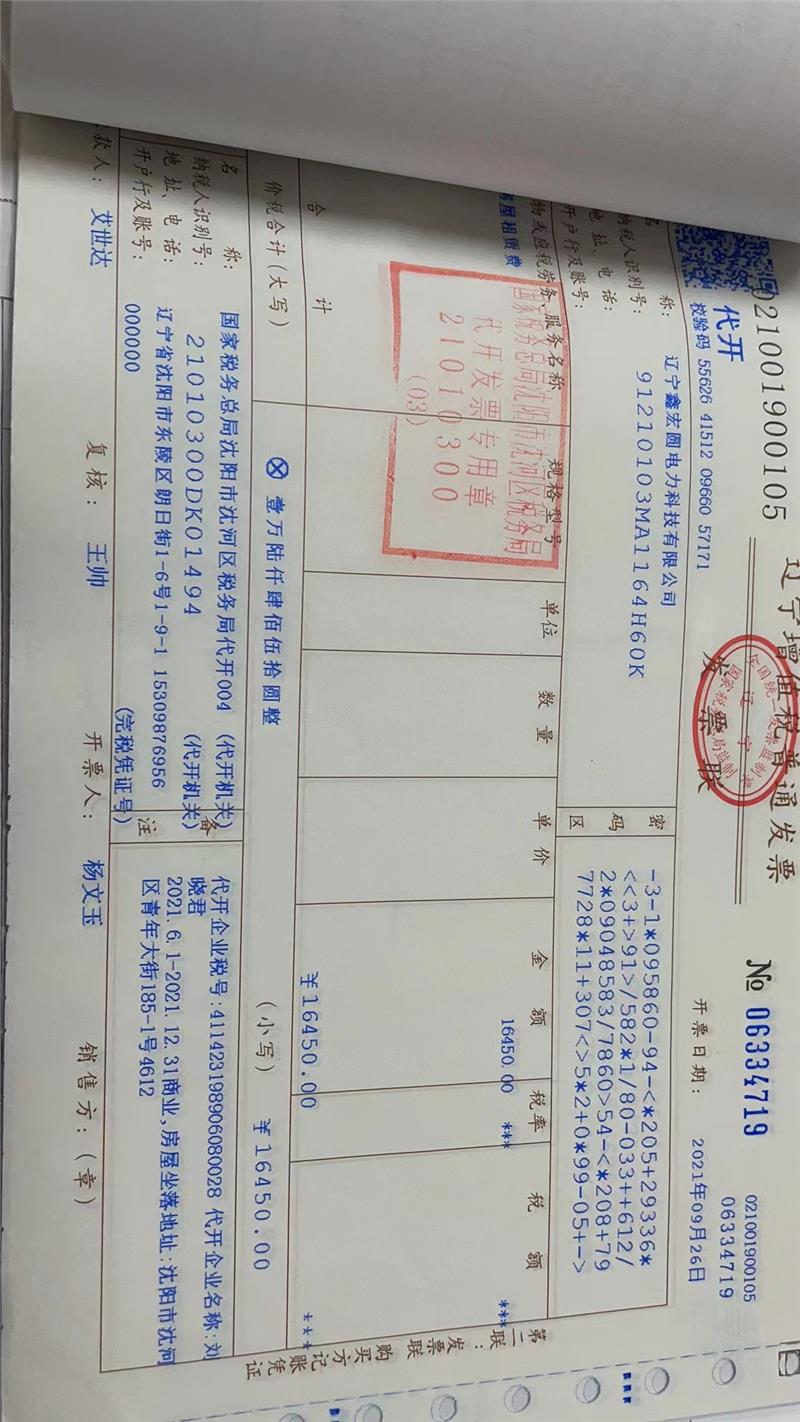 021001900105
辽宁增值税普通发票
发票联
№ 06334719
021001900105
06334719
代开
校验码 55626 41512 09660 57171
开票日期: 2021年09月26日
称: 辽宁鑫宏圆电力科技有限公司
纳税人识别号: 91210103MA1164H60K
地址、电话:
开户行及账号:
密码区
-3-1*095860-94-<*205+29336*
<<3+>91>/582*1/80-033++612/
2*09048583/7860>54-<*208+79
7728*11+307<>5*2+0*99-05+->
物或应税劳务、服务名称 规格型号 单位 数量 单价 金额 税率 税额
房屋租赁费 16450.00 *** ***
国家税务总局沈阳市沈河区税务局
代开发票专用章
21010300
(03)
合计 ¥16450.00 ***
价税合计(大写) ⊗壹万陆仟肆佰伍拾圆整 (小写) ¥16450.00
名称: 国家税务总局沈阳市沈河区税务局代开004 (代开机关)
纳税人识别号: 21010300DK01494 (代开机关)
地址、电话: 辽宁省沈阳市东陵区朗日街1-6号1-9-1 15309876956
开户行及账号: 000000 (完税凭证号)
备注
代开企业税号:411423198906080028 代开企业名称:刘
晓君
2021.6.1-2021.12.31商业,房屋坐落地址:沈阳市沈河
区青年大街185-1号4612
款人: 艾世达 复核: 王帅 开票人: 杨文玉 销售方:(章)
第二联:发票联 购买方记账凭证